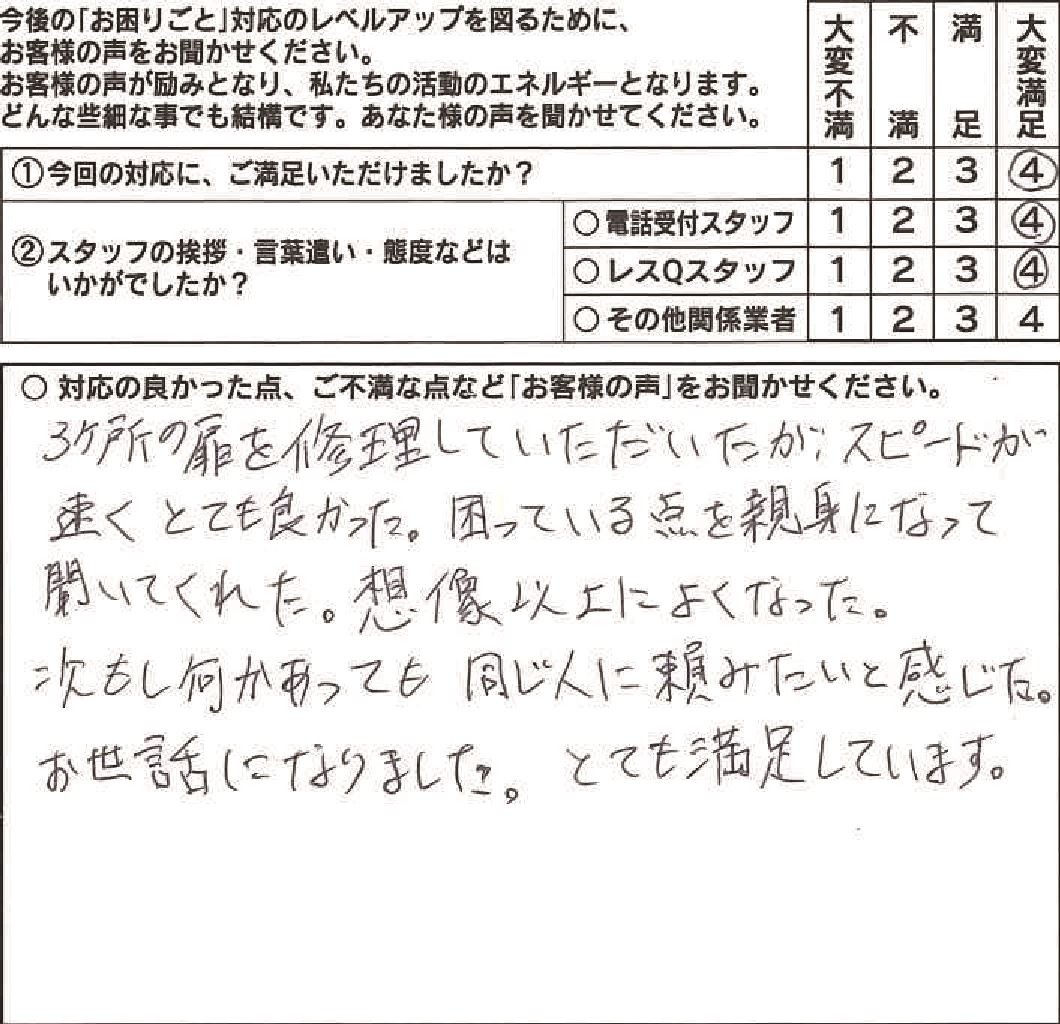 今後の｢お困りごと｣対応のレベルアップを図るために、
お客様の声をお聞かせください。
お客様の声が励みとなり、私たちの活動のエネルギーとなります。
どんな些細な事でも結構です。あなた様の声を聞かせてください。
大変不満 不満 満足 大変満足
①今回の対応に、ご満足いただけましたか？ 1 2 3 4
②スタッフの挨拶・言葉遣い・態度などは
いかがでしたか？
○ 電話受付スタッフ 1 2 3 4
○ レスQスタッフ 1 2 3 4
○ その他関係業者 1 2 3 4
○ 対応の良かった点、ご不満な点など｢お客様の声｣をお聞かせください。
3ケ所の扉を修理していただいたが、スピードが
速くとても良かった。困っている点を親身になって
聞いてくれた。想像以上によくなった。
次もし何かあっても 同じ人に頼みたいと感じた。
お世話になりました。とても満足しています。